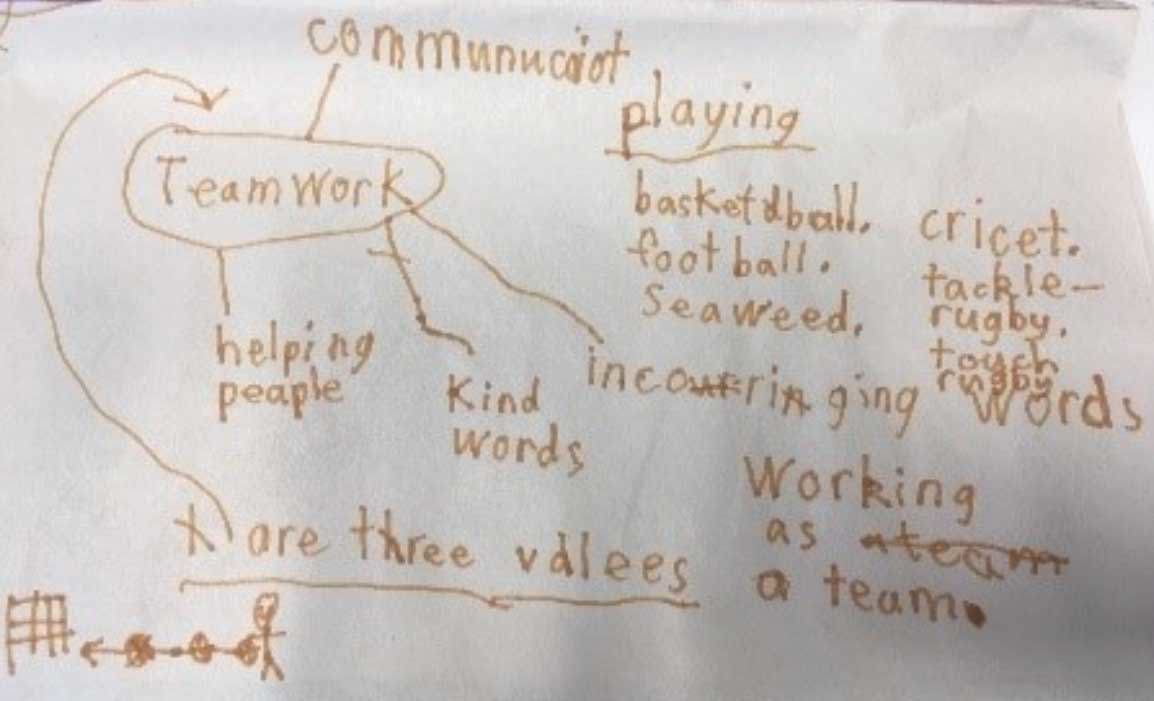 communucaiot
Teamwork
playing
basketball.
football.
Seaweed.
cricet.
tackle-
rugby.
touch
rugby
helping
peaple
Kind
words
incouringing words
are three valees
Working
as a team
a team.